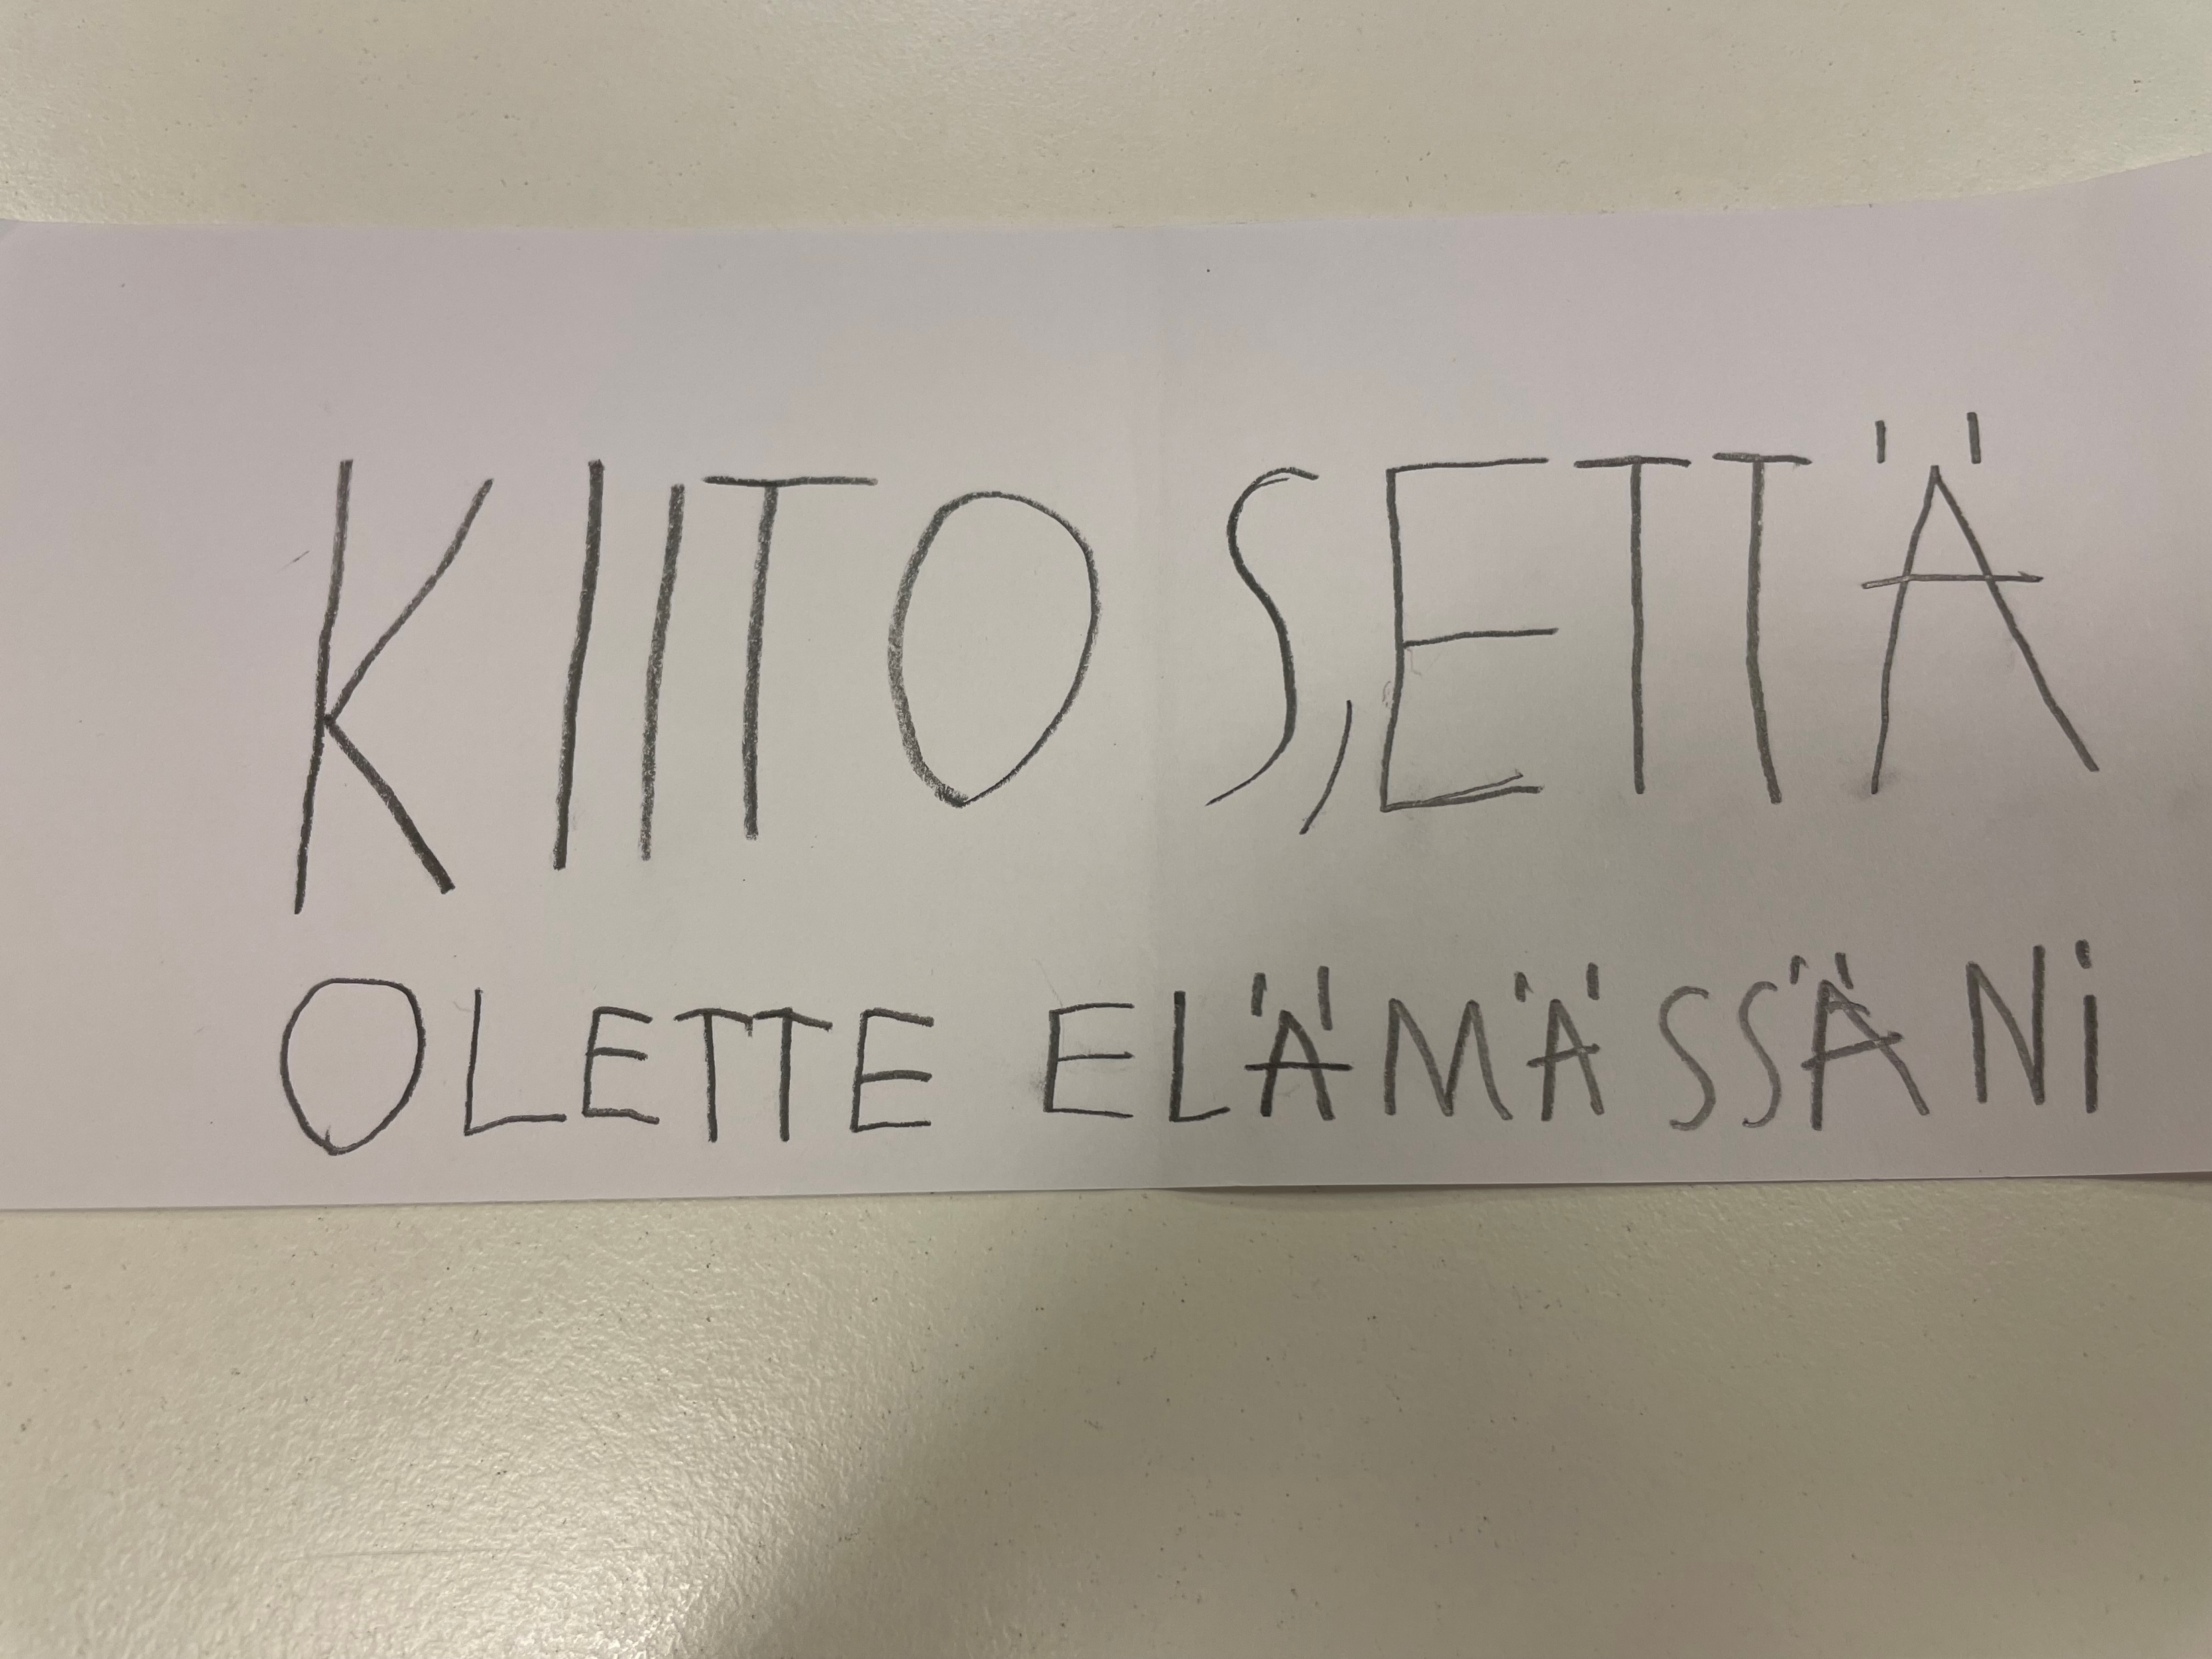 KIITOS, ETTÄ
OLETTE ELÄMÄSSÄNI